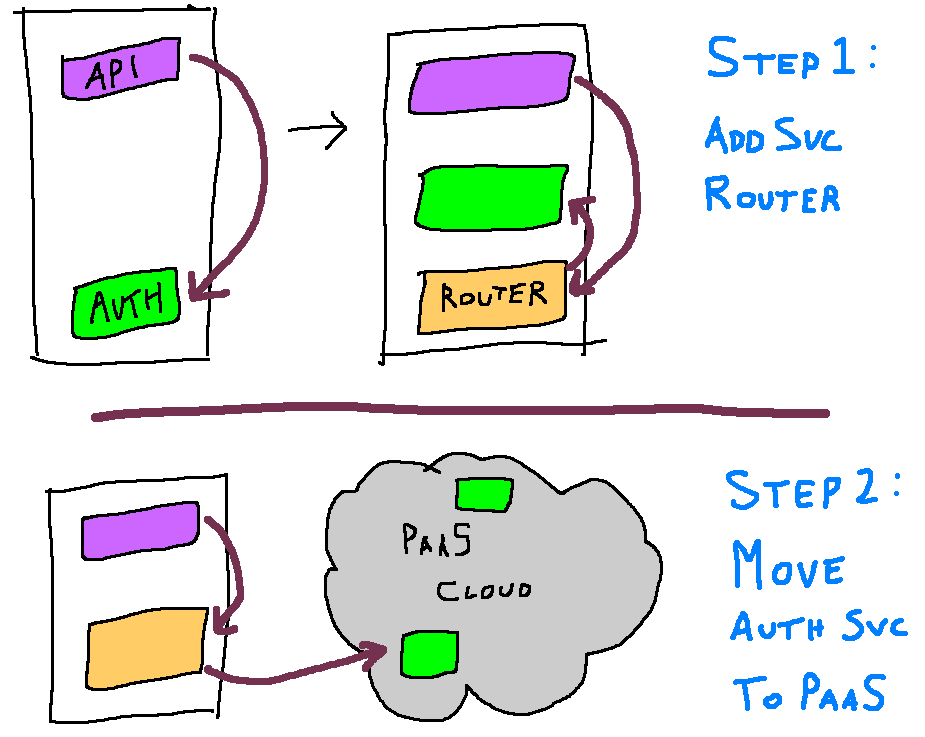 API
AUTH
ROUTER
STEP 1:
ADD SVC
ROUTER
PAAS
CLOUD
STEP 2:
MOVE
AUTH SVC
TO PAAS